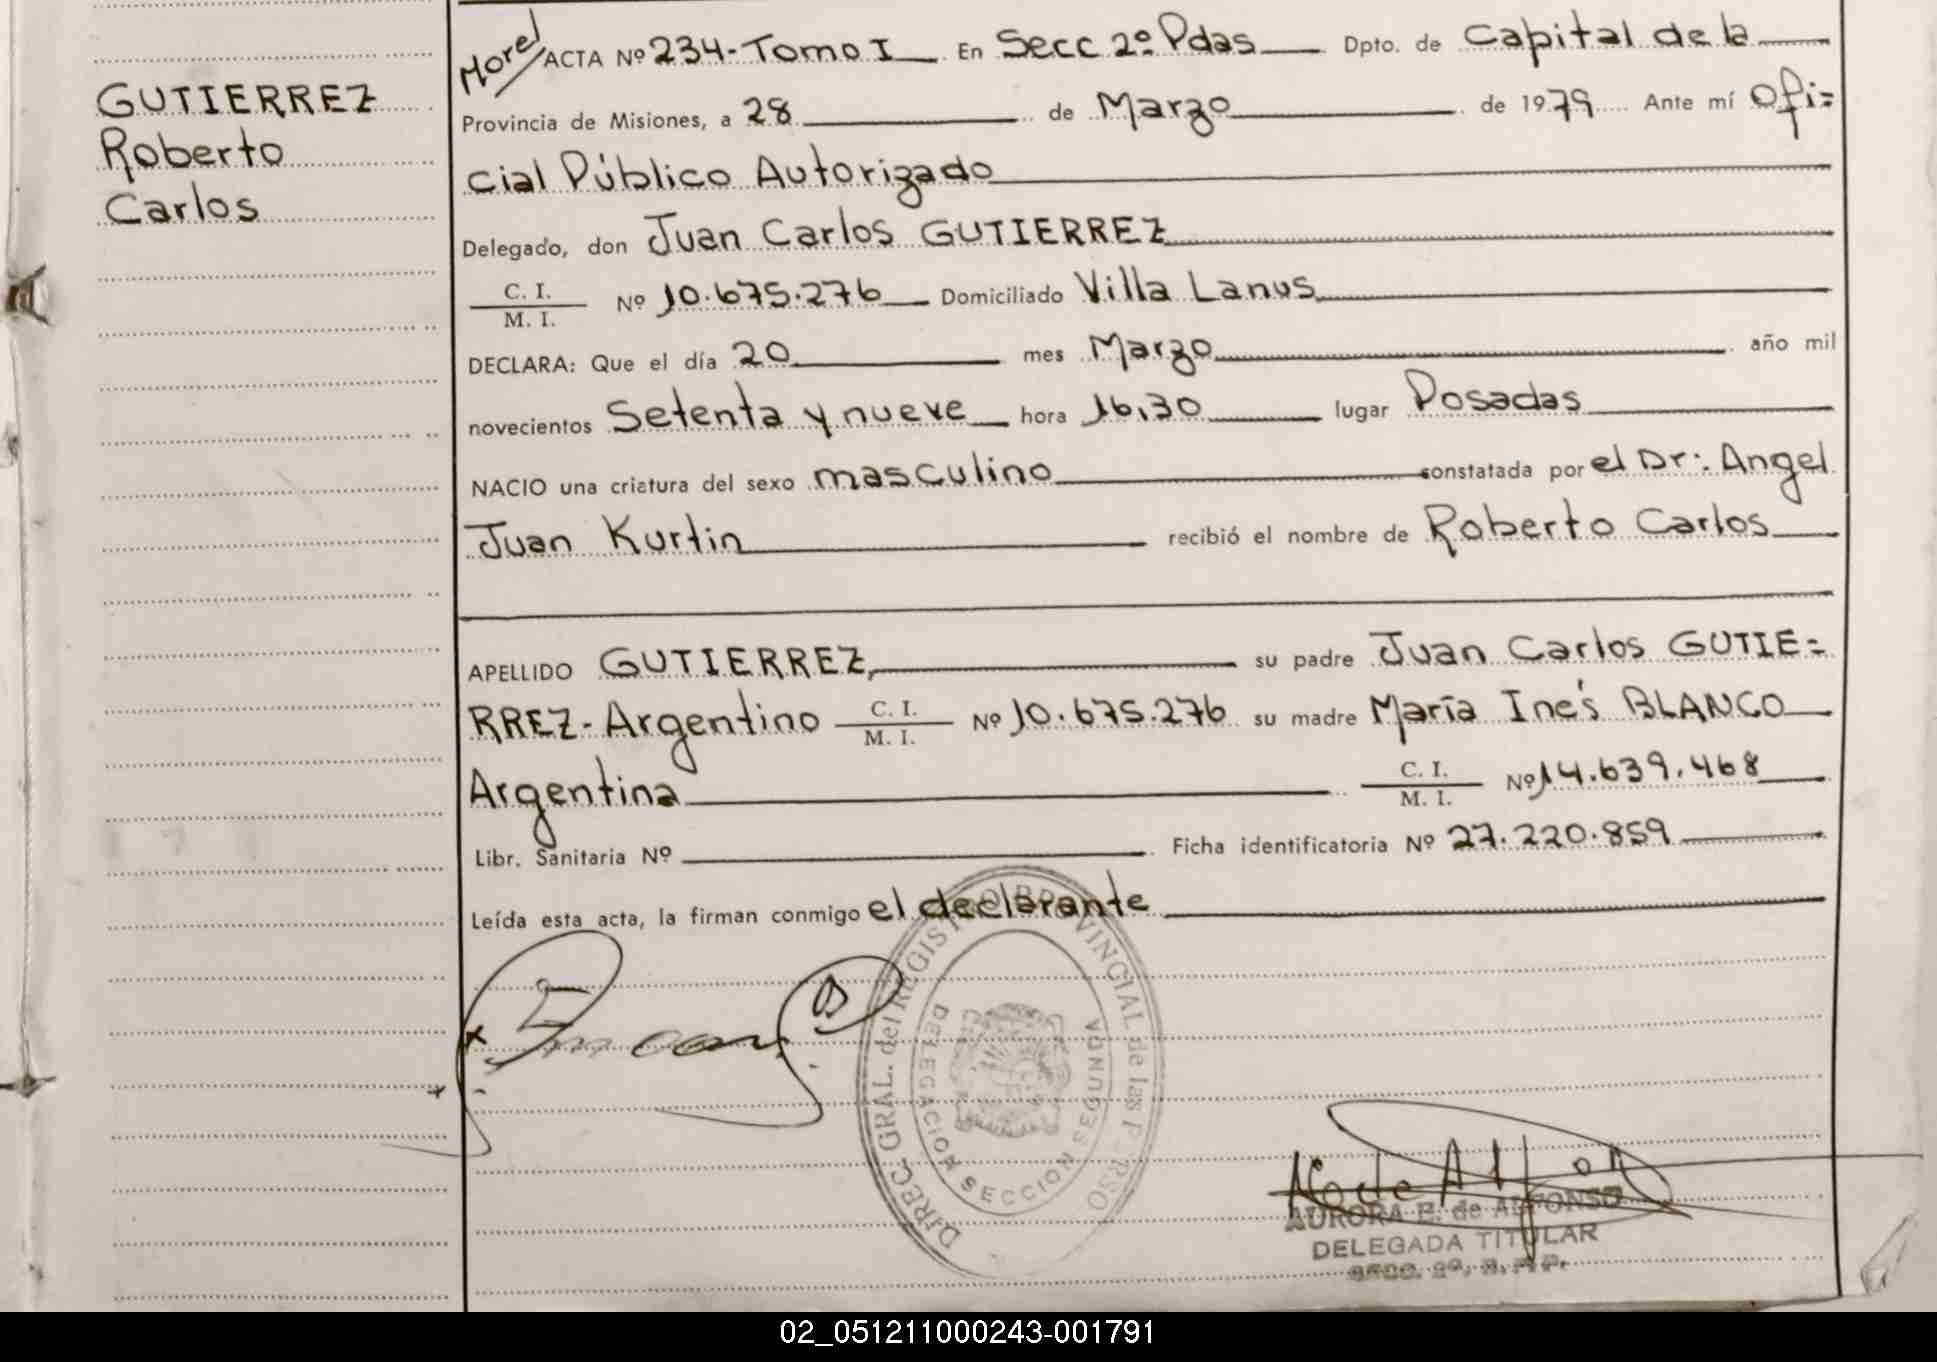 GUTIERREZ
Roberto
Carlos
Morel ACTA Nº 234-Tomo I En Secc 2º Pdas Dpto. de Capital de la
Provincia de Misiones, a 28 de Marzo de 1979 Ante mí Ofi=
cial Público Autorizado
Delegado, don Juan Carlos GUTIERREZ
C. I.
M. I. Nº 10.675.276 Domiciliado Villa Lanus
DECLARA: Que el día 20 mes Marzo año mil
novecientos Setenta y nueve hora 16,30 lugar Posadas
NACIO una criatura del sexo masculino constatada por el Dr: Angel
Juan Kurtin recibió el nombre de Roberto Carlos
APELLIDO GUTIERREZ, su padre Juan Carlos GUTIE=
RREZ-Argentino C. I. M. I. Nº 10.675.276 su madre María Inés BLANCO
Argentina C. I. M. I. Nº 14.639.468
Libr. Sanitaria Nº Ficha identificatoria Nº 27.220.859
Leída esta acta, la firman conmigo el declarante
DIREC. GRAL. del REGISTRO PROVINCIAL de las PERSO
DELEGACION SECCION SEGUNDA
AURORA E. de ALFONSO
DELEGADA TITULAR
SECC. 2º, R. P. P.
02_051211000243-001791